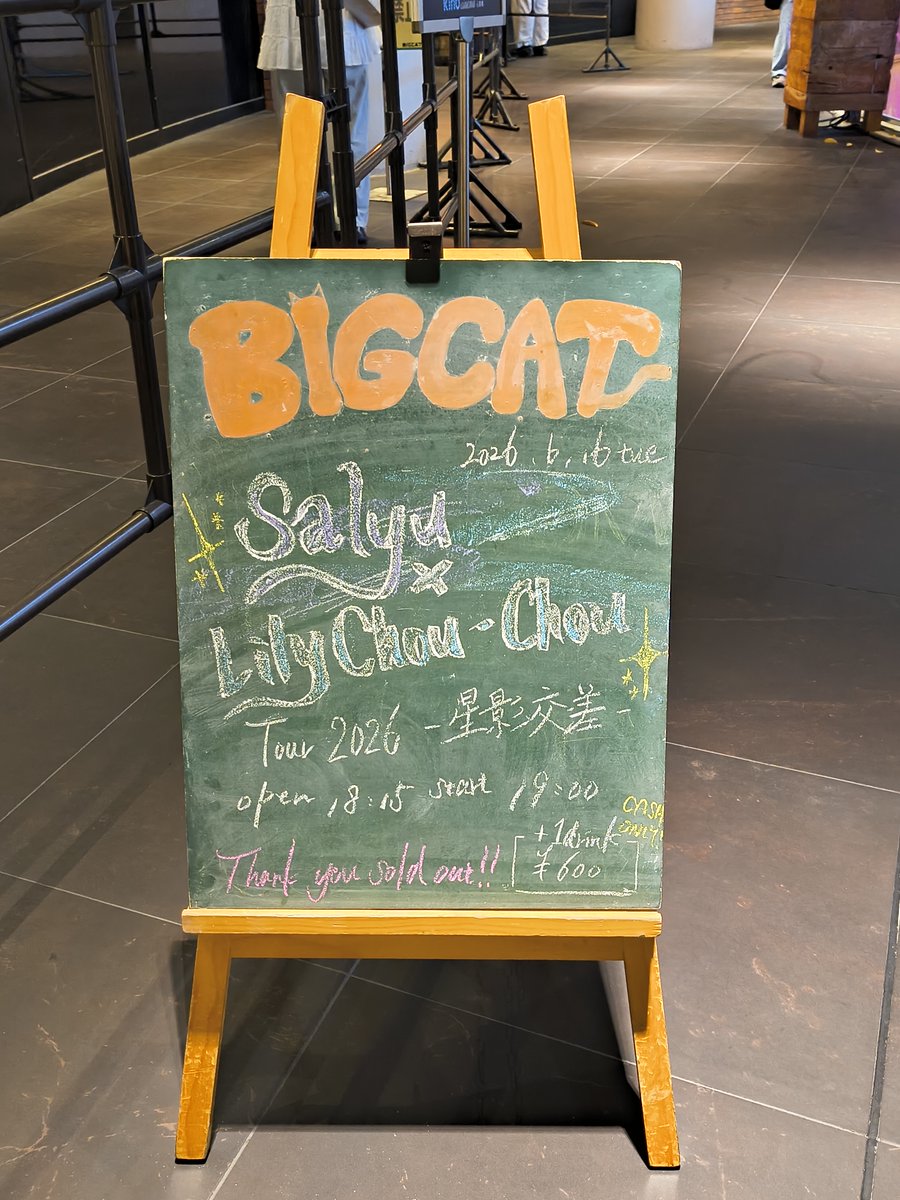 BIGCAT
2026.6.16 tue
Salyu
×
Lily Chou-Chou
Tour 2026 -星影交差-
open 18:15 start 19:00
CASH
ONLY!
+1drink
¥600
Thank you sold out!!